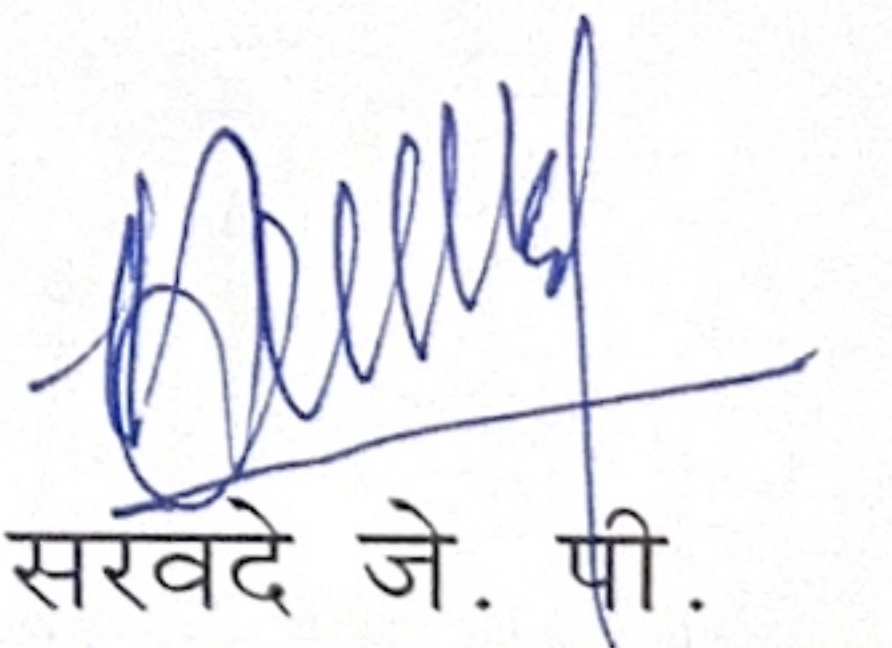 सरवदे जे. पी.